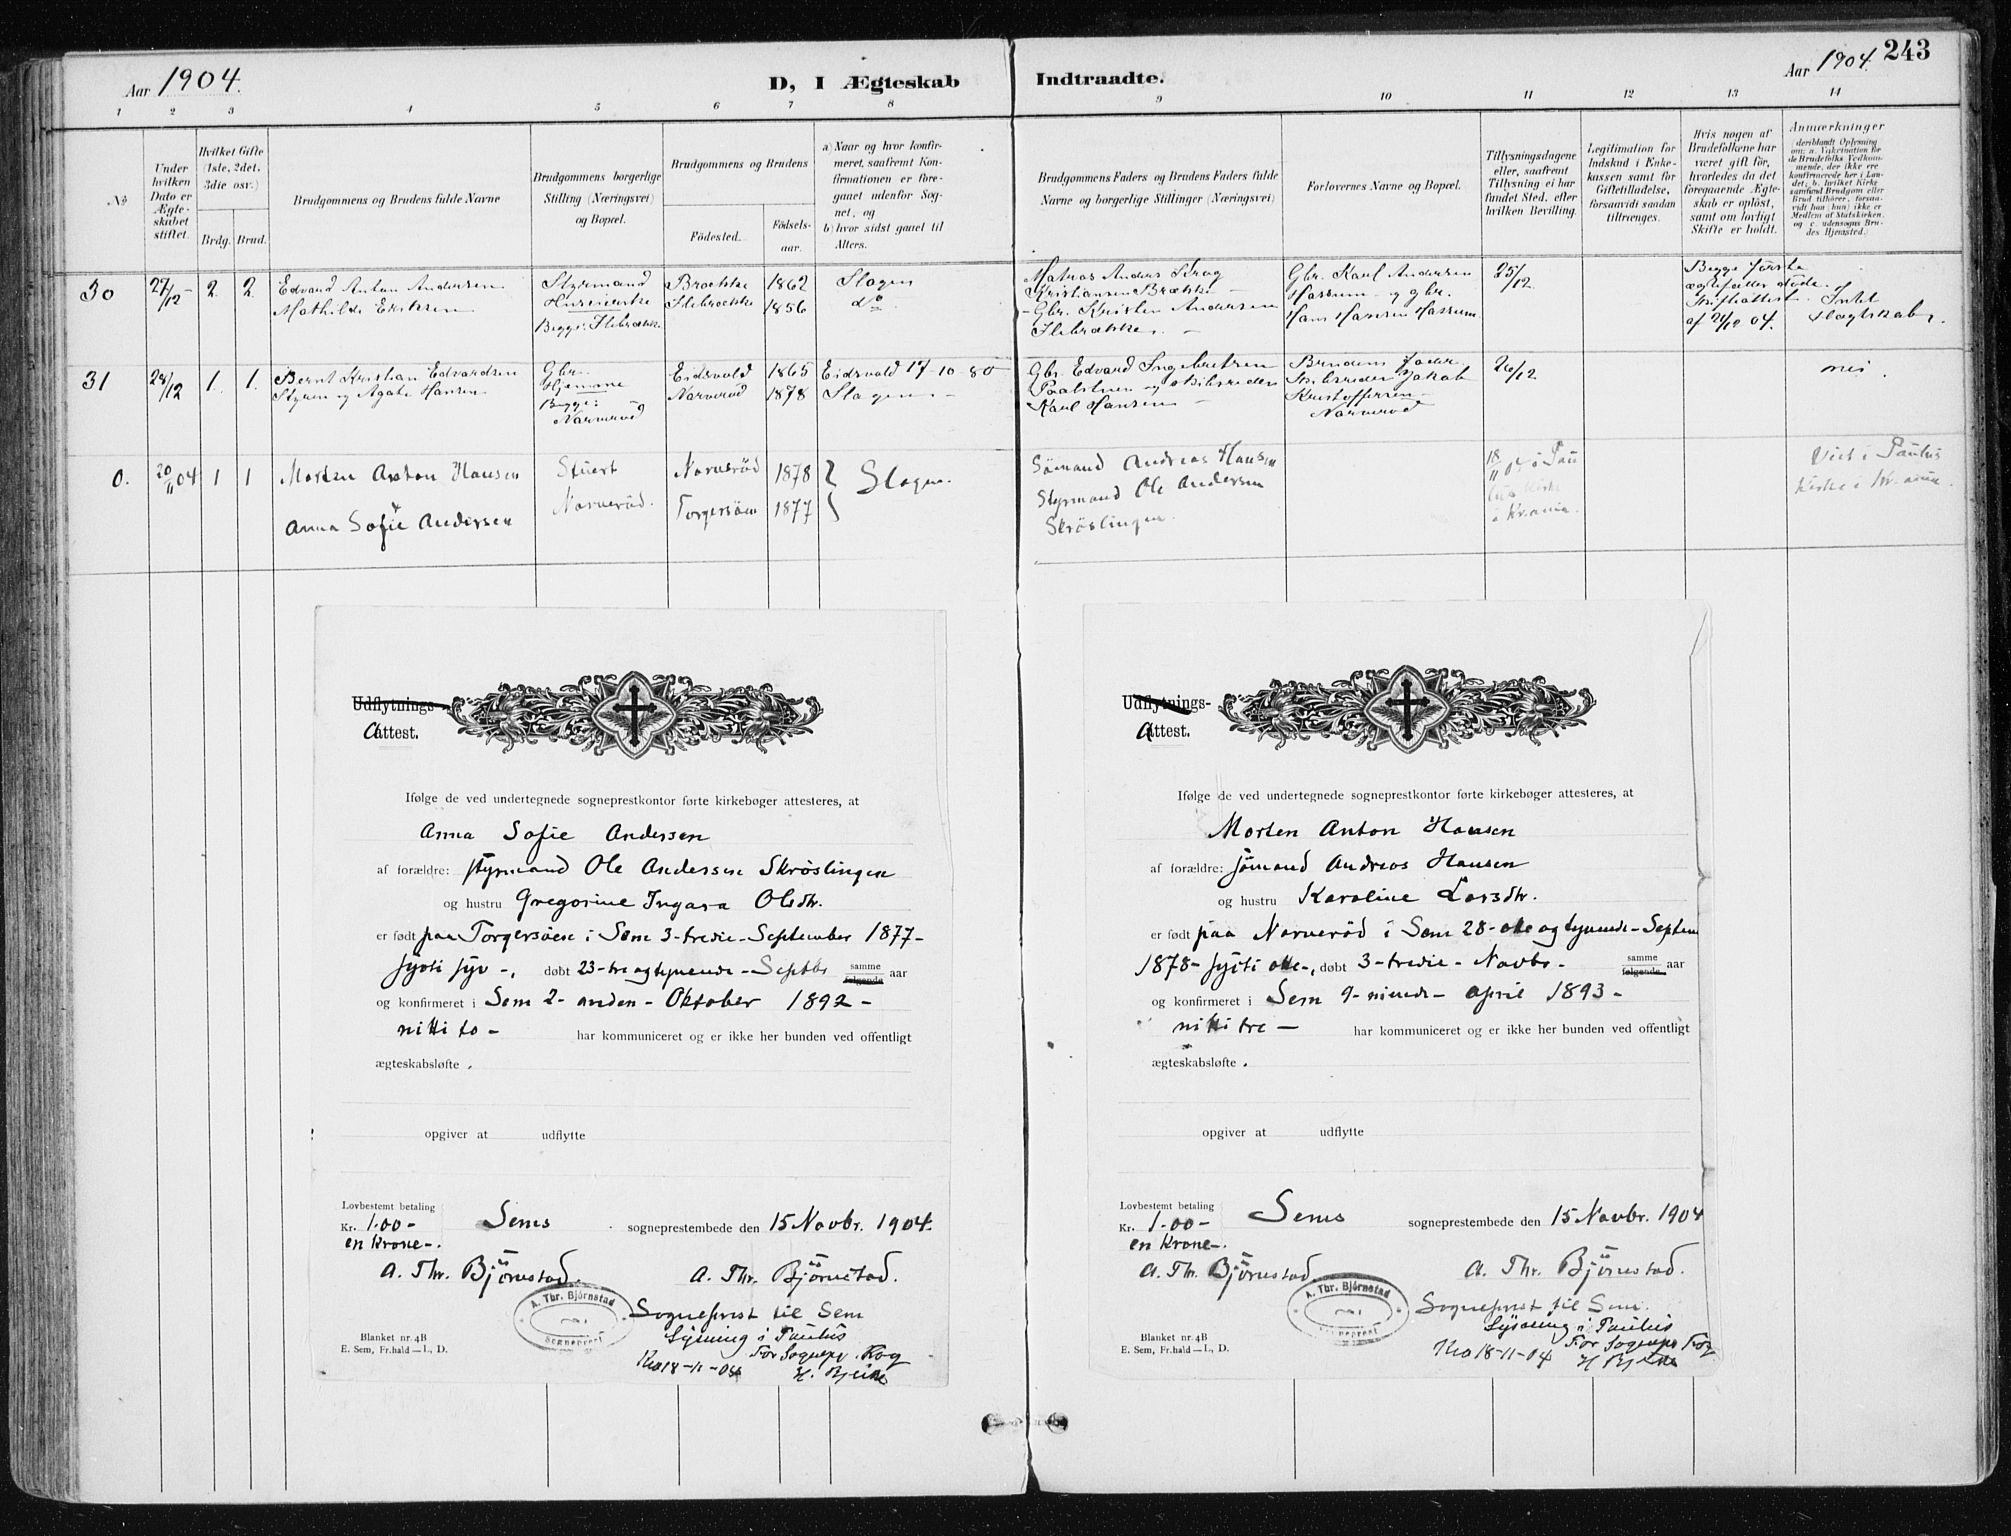 Aar 1904.
D, I Ægteskab
Indtraadte.
Aar 1904. 243
1 2 3 4 5 6 7 8 9 10 11 12 13 14
№
Under hvilken Dato er Ægteskabet stiftet.
Hvilket Gifte (1ste, 2det, 3die osv.)
Brdg. Brud.
Brudgommens og Brudens fulde Navne
Brudgommens borgerlige Stilling (Næringsvei) og Bopæl.
Brudgommens og Brudens
Födested.
Födsels-aar.
a) Naar og hvor konfirmeret, saafremt Konfirmationen er foregaaet udenfor Sognet, og
b) hvor sidst gaaet til Alters.
Brudgommens Faders og Brudens Faders fulde Navne og borgerlige Stillinger (Næringsvei)
Forlovernes Navne og Bopæl.
Tillysningsdagene eller, saafremt Tillysning ei har fundet Sted, efter hvilken Bevilling.
Legitimation for Indskud i Enkekassen samt for Giftetilladelse, forsaavidt saadan tiltrænges.
Hvis nogen af Brudefolkene har været gift för, hvorledes da det foregaaende Ægteskab er oplöst, samt om lovligt Skifte er holdt.
Anmærkninger
30 27/12 2. 2. Edvard Anton Andersen Styrmand Brække 1862 Slagen
Mathilde Eriksen Ilebrække 1856 do.
Begge: Ilebrække.
Kristiansen Brække
Gbr. Kristen Andersen
Ilebrække.
Gbr. Karl Andersen
Hassum og gbr.
Hans Hansen Hassum
25/12.
Begge første
ægtefæller døde.
Skifteattest
Intet
Slægtskab.
31 28/12 1. 1. Bernt Kristian Edvardsen Gbr. Eidsvold 1865 Eidsvold 17-10-80
og Agate Hansen Hjemme Narverød 1878 Slagen
Begge:
Narverød
Gbr. Edvard Ingebretsen
og Skibsreder
Karl Hansen
Brudens Fader
Skibsreder Jakob
Kristoffersen
Narverød
26/12
nei.
0. 20/11 04 1 1 Morten Anton Hansen Stuert Narverød 1878 Slagen.
Anna Sofie Andersen Narverød. Torgersøen 1877
Sömand Andreas Hansen
Styrmand Ole Andersen
Skröslingen.
18/11 04 i Pau
lus Kirke
i Kr.ania.
Viet i Paulus
Kirke i Kr.ania.
Udflytnings-
Attest.
Ifølge de ved undertegnede sogneprestkontor førte kirkebøger attesteres, at
Anna Sofie Andersen
af forældre: styrmand Ole Andersen Skröslingen
og hustru Gregorine Ingara Olsdtr.
er født paa Torgersöen i Sem 3-tredie-September 1877-
sytti syv-, døbt 23-tre og tyvende-Septbr samme følgende aar
og konfirmeret i Sem 2-anden-Oktober 1892-
nitti to- har kommuniceret og er ikke her bunden ved offentligt
ægteskabsløfte.
opgiver at udflytte
Lovbestemt betaling
Kr. 1.00-
en Krone-.
Sems sogneprestembede den 15 Novbr. 1904.
A. Thr. Björnstad. A. Thr. Björnstad.
A. Thr. Björnstad
Sogneprest
Sogneprest til Sem
Lysning i Paulus
Kra 18-11-04
For Sognepr.
Blanket nr. 4B
E. Sem, Fr.hald — I, D.
Udflytnings-
Attest.
Ifølge de ved undertegnede sogneprestkontor førte kirkebøger attesteres, at
Morten Anton Hansen
af forældre: sömand Andreas Hansen
og hustru Karoline Larsdtr.
er født paa Narverød i Sem 28-otte og tyvende-Septem
1878-sytti otte-, døbt 3-tredie-Novbr- samme følgende aar
og konfirmeret i Sem 9-niende-april 1893-
nitti tre- har kommuniceret og er ikke her bunden ved offentligt
ægteskabsløfte.
opgiver at udflytte
Lovbestemt betaling
Kr. 1.00-
en Krone-.
Sems sogneprestembede den 15 Novbr. 1904
A. Thr. Björnstad A. Thr. Björnstad.
A. Thr. Björnstad
Sogneprest
Sogneprest til Sem.
Lysning i Paulus
Kra 18-11-04
For Sognepr
Blanket nr. 4B
E. Sem, Fr.hald — I, D.